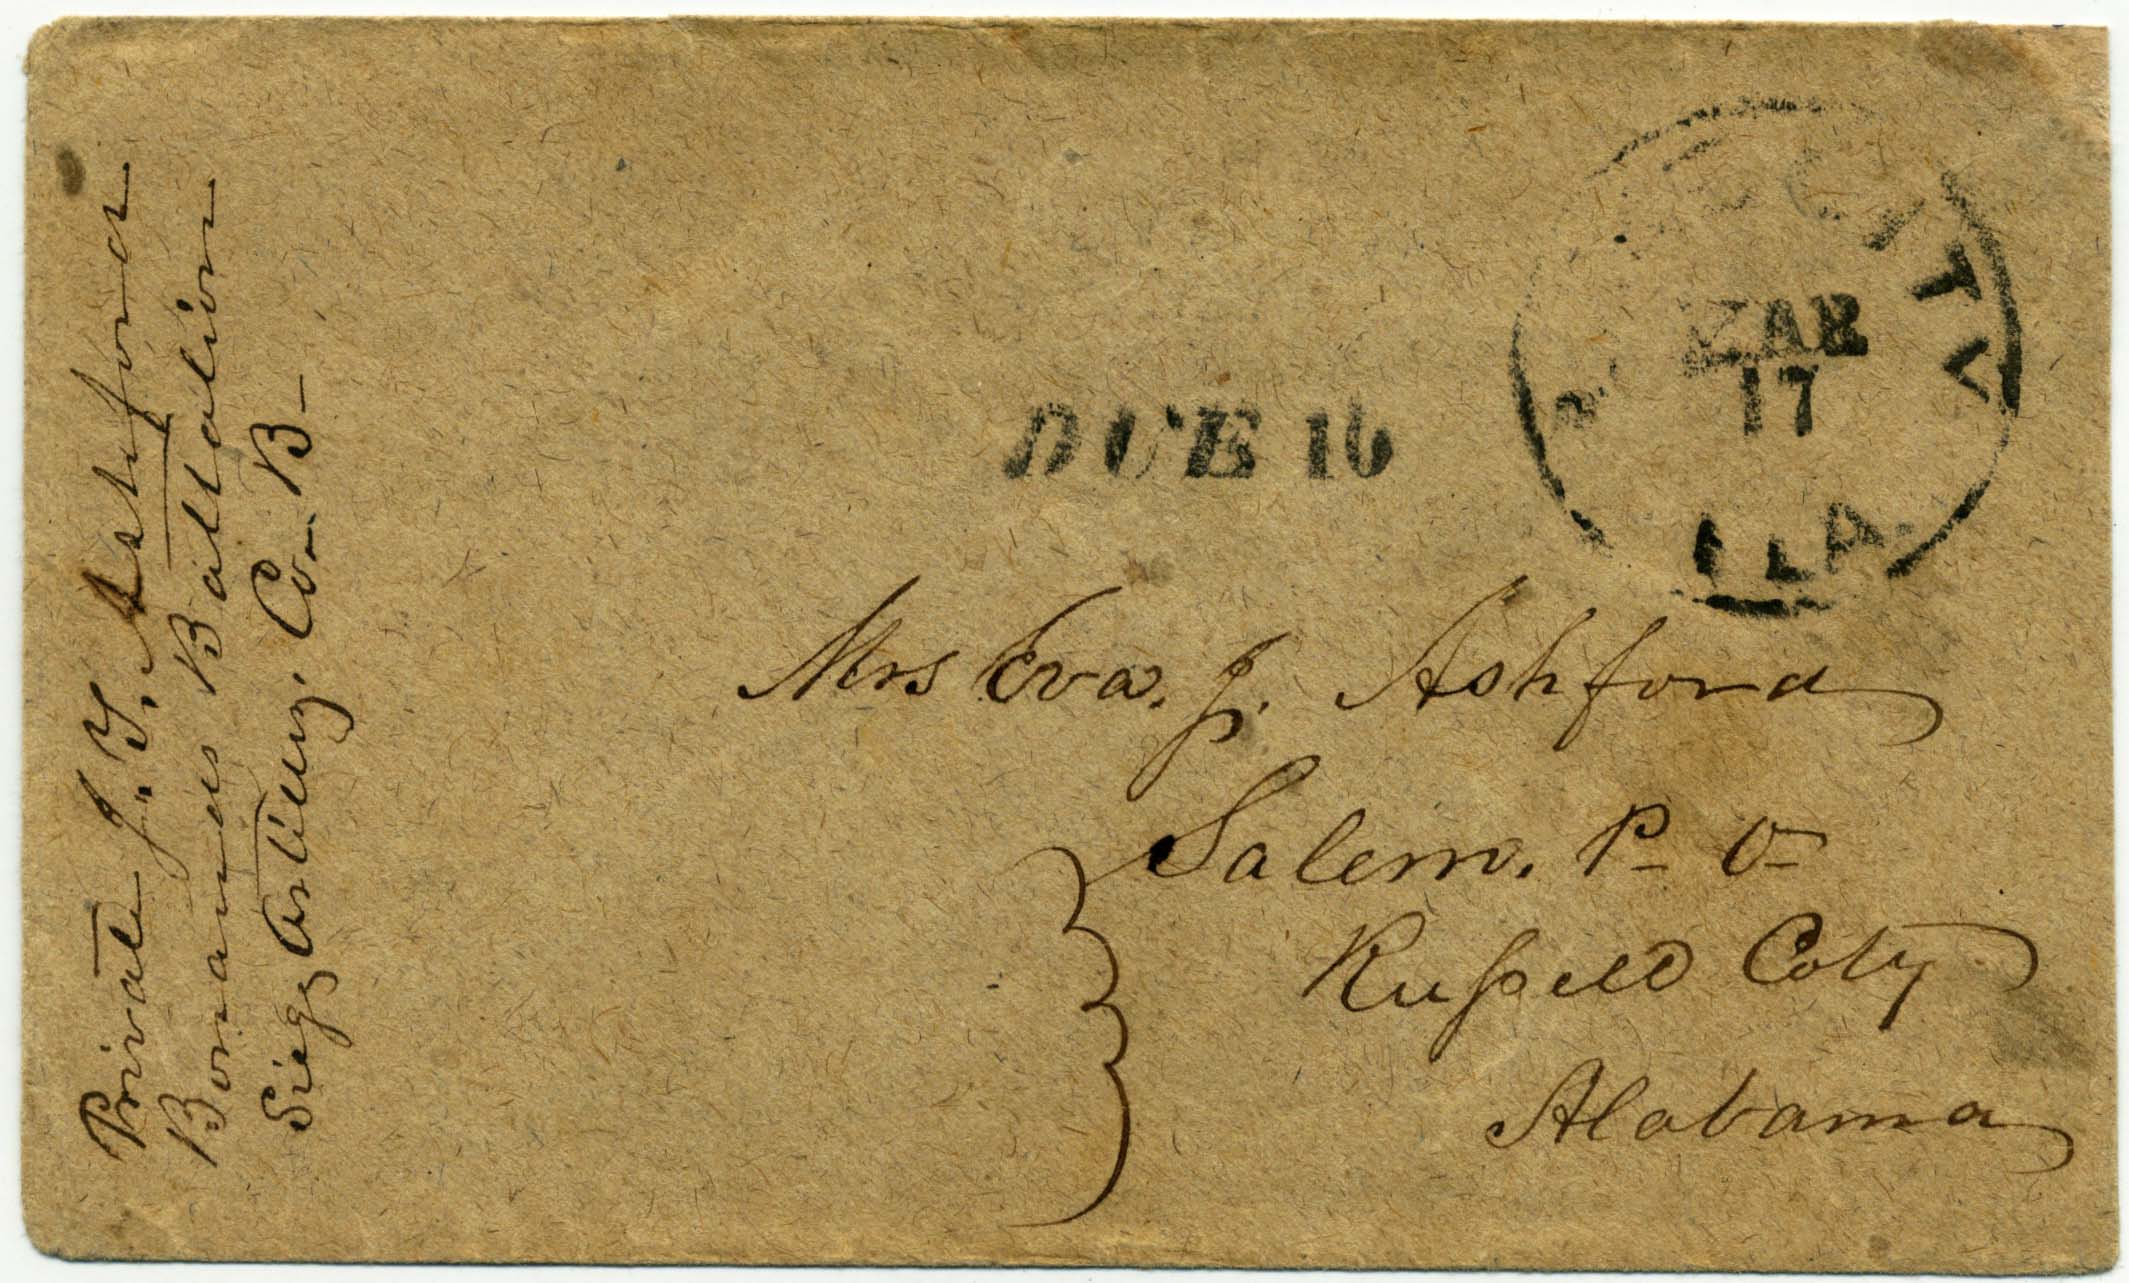 Private J. T. Ashford
Bonauds Battalion
Siege Artilery, Co. B-
DUE 10
MAR
17
FLA
Mrs Eva. J. Ashford
Salem. P- O-
Russell Coty
Alabama